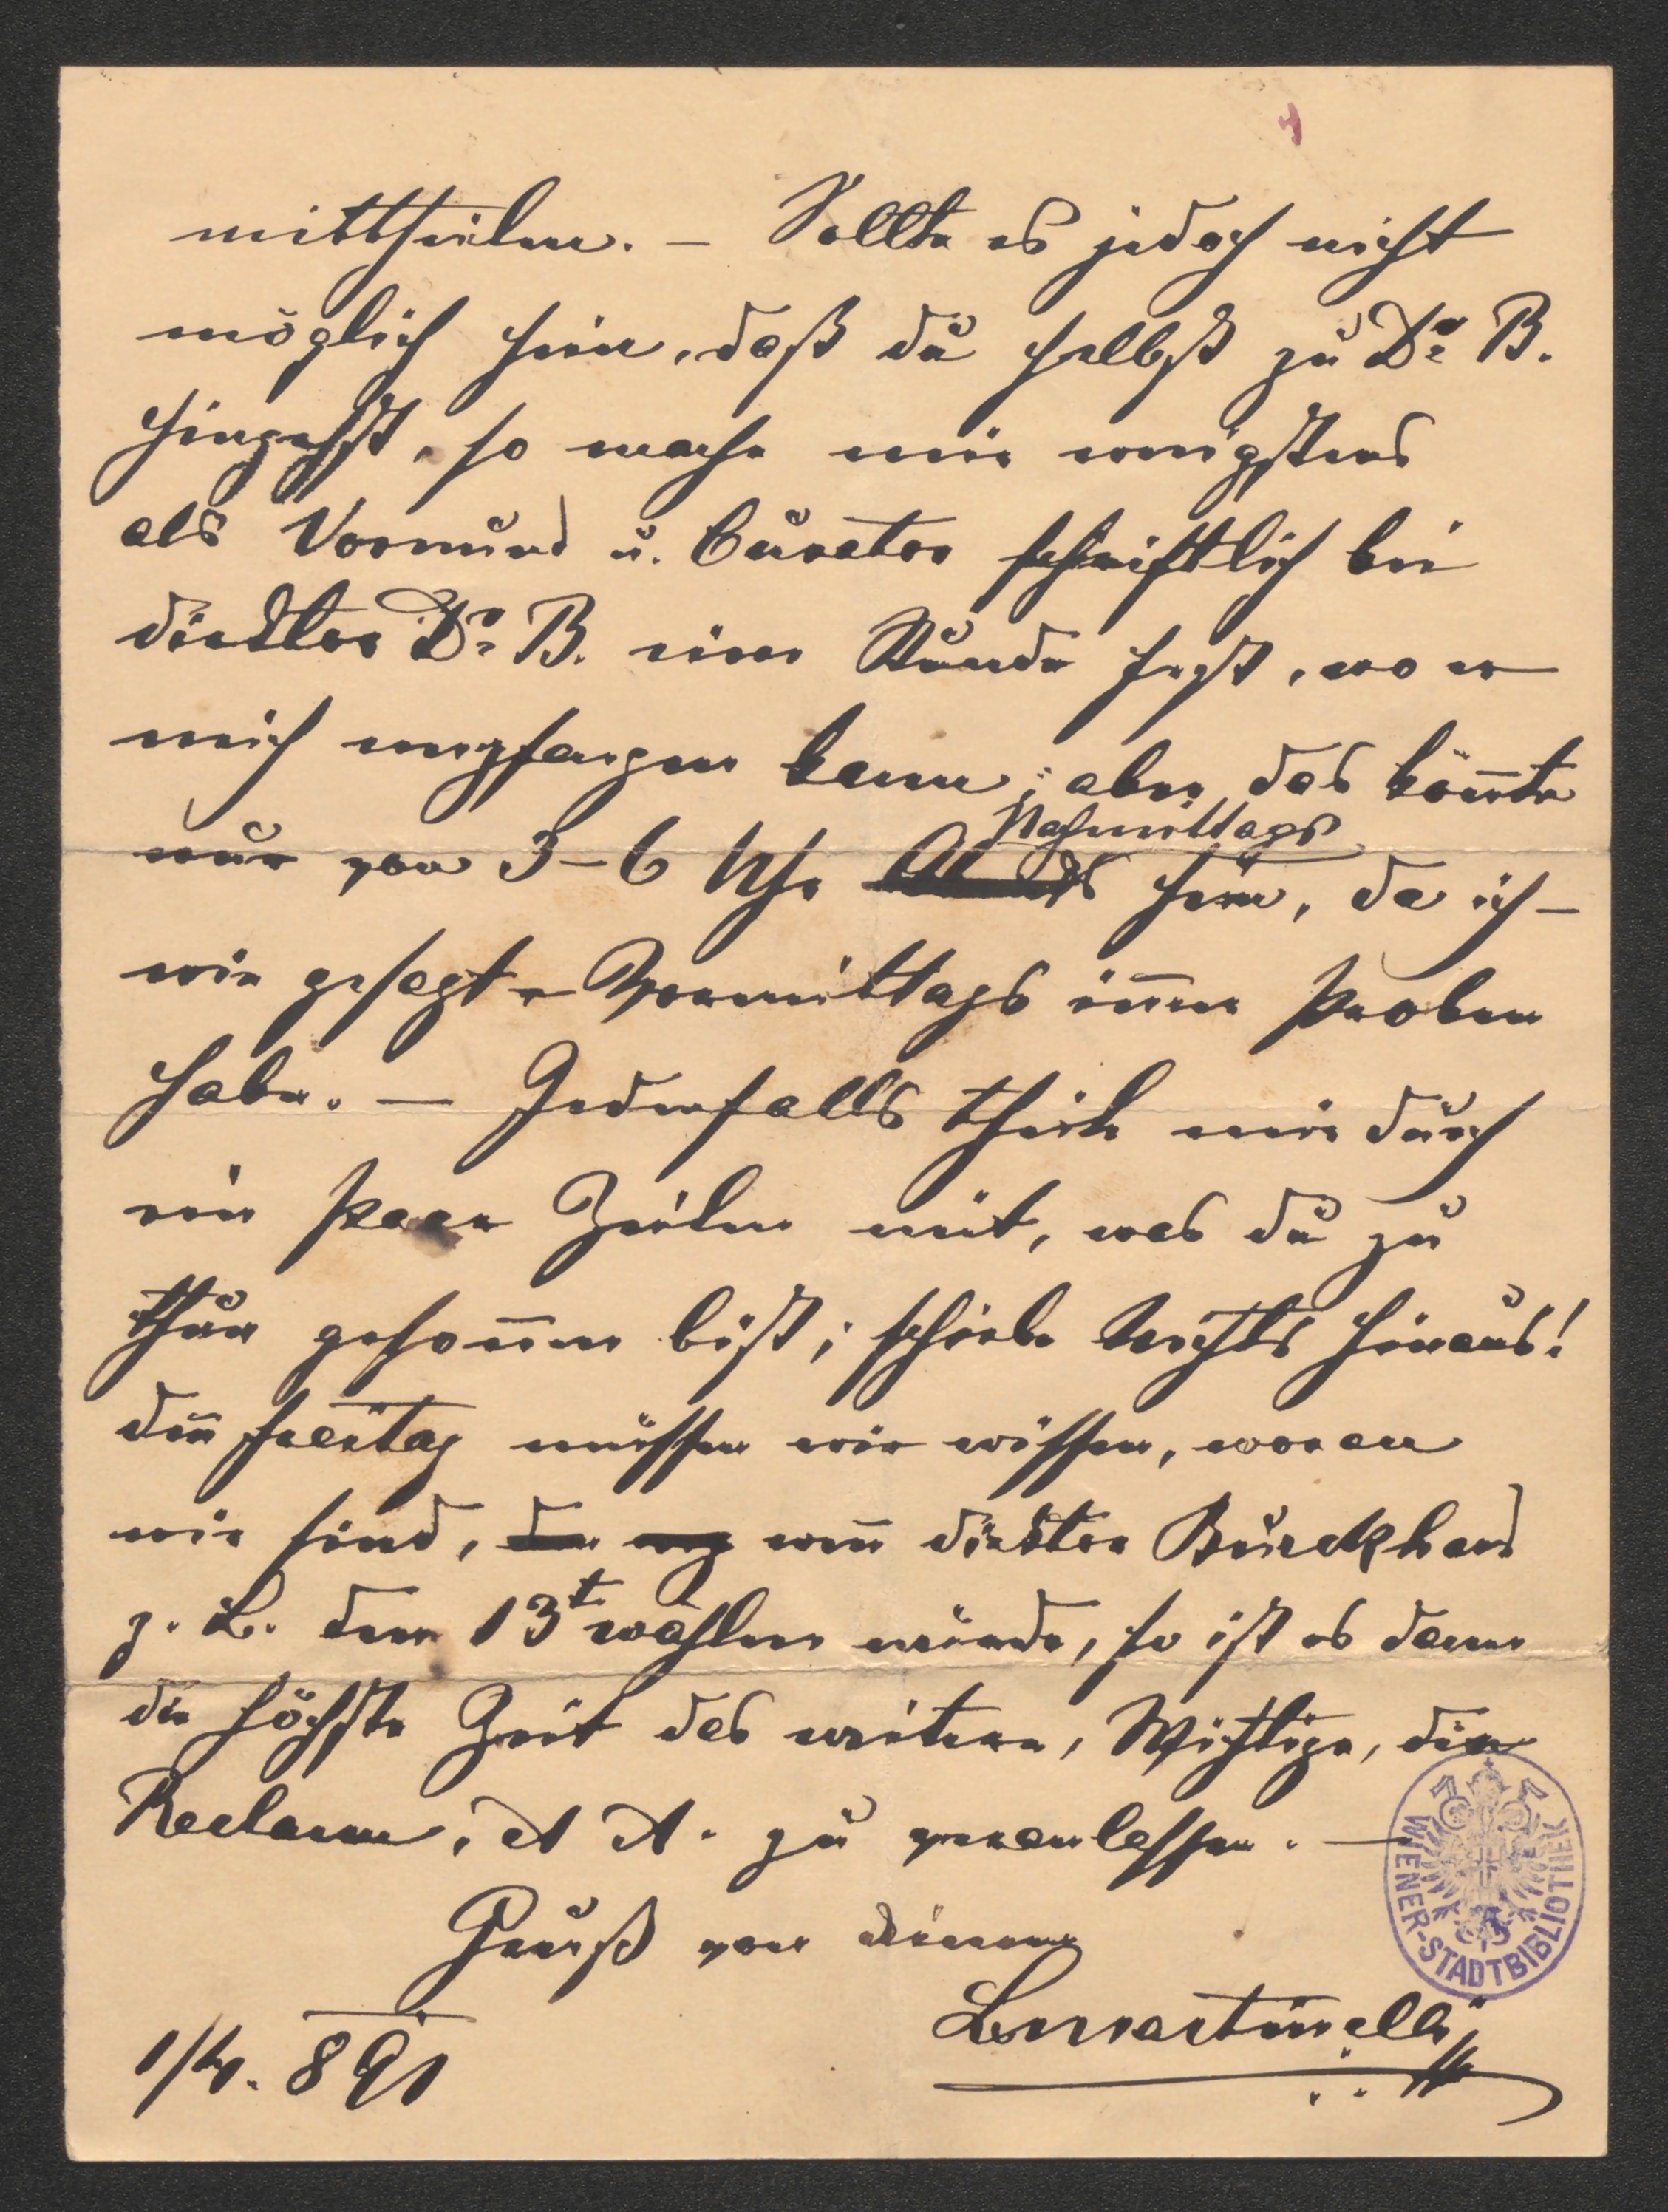 mittheilen. – Sollte es jedoch nicht
möglich sein, daß du selbst zu Dr. B.
hingehst, so mache mir wenigstens
als Vormund u. Curator schriftlich bei
Director Dr. B. eine Stunde fest, wo er
mich empfangen kann; aber das könnte
Nachmittags
nur von 3–6 Uhr Abends sein, da ich –
wie gesagt – Vormittags im̄er Proben
habe. – Jedenfalls theile mir durch
ein paar Zeilen mit, was du zu
thun geson̄en bist; schiebe Nichts hinaus!
Den̄ Freitag müssen wir wissen, woran
wir sind, wen̄ Director Burckhard
z. B. den 13t wählen würde, so ist es dann
die höchste Zeit das weitere, Wichtige, die
Reclame, etc. zu veranlassen. –
Gruß von deinem
LMartinelli
1/4. 891
WIENER-STADTBIBLIOTHEK